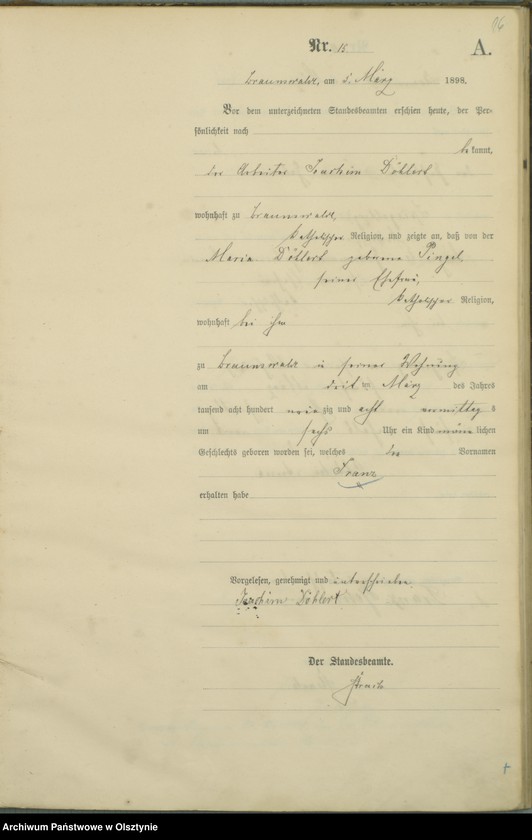 16
Nr. 15
A.
Braunswalde, am 5. März 1898.
Vor dem unterzeichneten Standesbeamten erschien heute, der Per-
sönlichkeit nach
bekannt,
der Arbeiter Joachim Döhlert
wohnhaft zu Braunswalde,
katholischer Religion, und zeigte an, daß von der
Maria Döhlert geborene Pingel,
seiner Ehefrau,
katholischer Religion,
wohnhaft bei ihm
zu Braunswalde in seiner Wohnung
am drit ten März des Jahres
tausend acht hundert neunzig und acht vormittags
um sechs Uhr ein Kind männlichen
Geschlechts geboren worden sei, welches den Vornamen
Franz
erhalten habe
Vorgelesen, genehmigt und unterschrieben.
Joachim Döhlert
Der Standesbeamte.
Archiwum Państwowe w Olsztynie